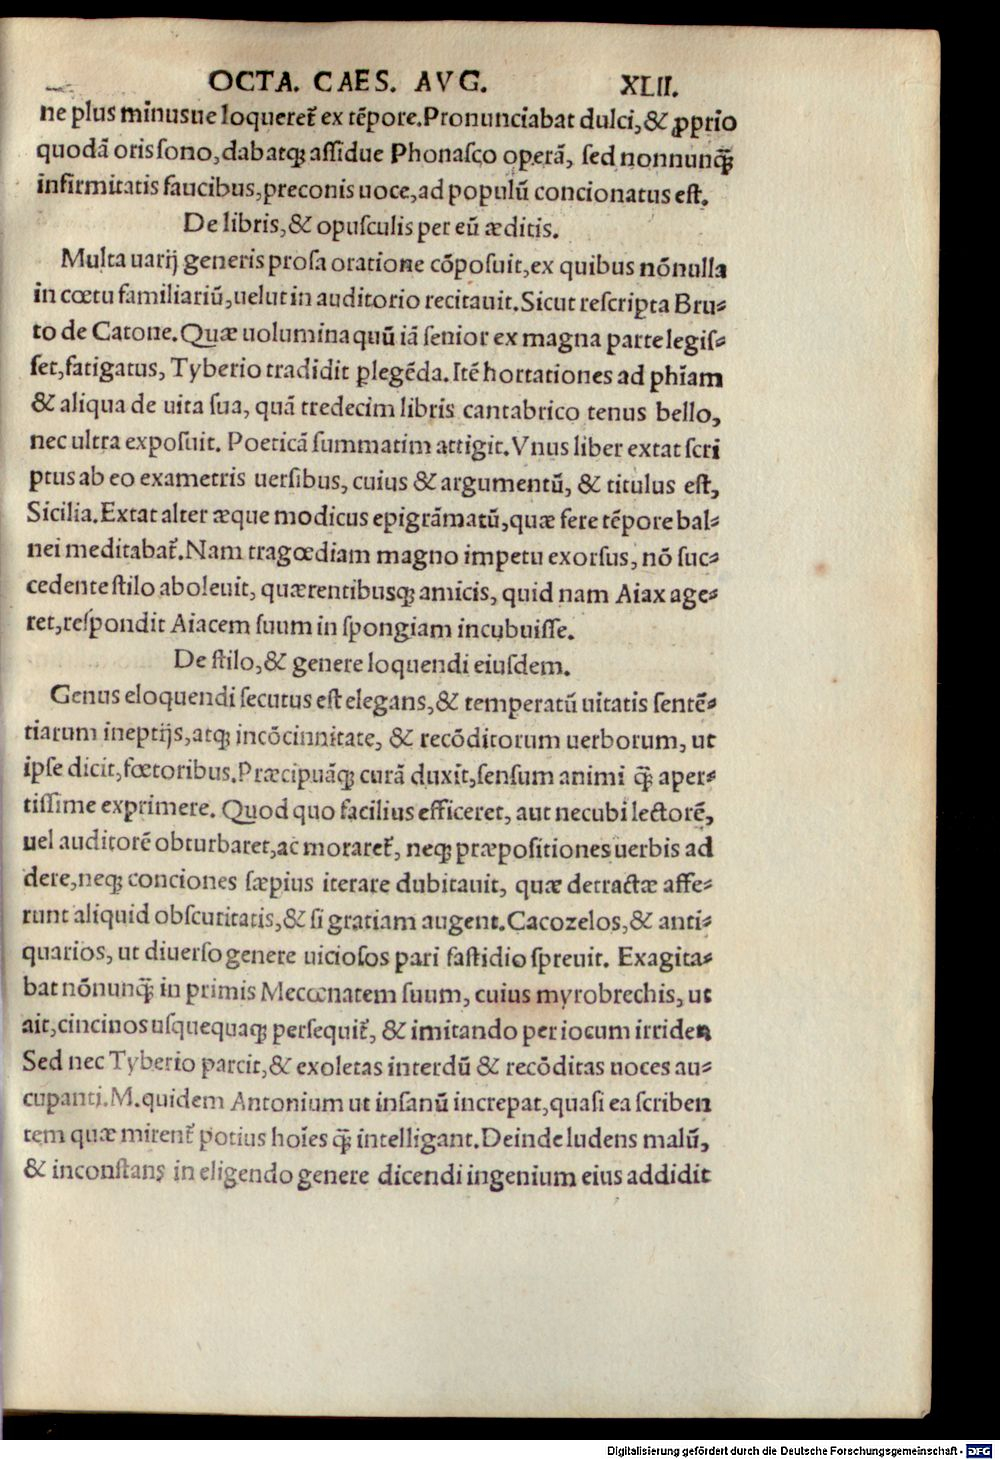 OCTA. CAES. AVG. XLII.
ne plus minusue loqueret᷑ ex tẽpore.Pronunciabat dulci,& ꝓprio
quodã oris sono,dabatqꝫ assidue Phonasco operã, sed nonnunꝙ̃
infirmitatis faucibus,preconis uoce,ad populũ concionatus est.
De libris,& opusculis per eũ æditis.
Multa uarij generis prosa oratione cõposuit,ex quibus nõnulla
in cœtu familiariũ,uelut in auditorio recitauit.Sicut rescripta Bru⸗
to de Catone.Quæ uolumina quũ iã senior ex magna parte legis⸗
set,fatigatus, Tyberio tradidit ꝑlegẽda.Itẽ hortationes ad phiam
& aliqua de uita sua, quã tredecim libris cantabrico tenus bello,
nec ultra exposuit. Poeticã summatim attigit.Vnus liber extat scri
ptus ab eo exametris uersibus, cuius & argumentũ, & titulus est,
Sicilia.Extat alter æque modicus epigrãmatũ,quæ fere tẽpore bal⸗
nei meditabat᷑.Nam tragœdiam magno impetu exorsus, nõ suc⸗
cedente stilo aboleuit, quærentibusqꝫ amicis, quid nam Aiax age⸗
ret,respondit Aiacem suum in spongiam incubuisse.
De stilo,& genere loquendi eiusdem.
Genus eloquendi secutus est elegans,& temperatũ uitatis sentẽ⸗
tiarum ineptijs,atqꝫ incõcinnitate, & recõditorum uerborum, ut
ipse dicit,fœtoribus.Præcipuãqꝫ curã duxit,sensum animi ꝙ̃ aper⸗
tissime exprimere. Quod quo facilius efficeret, aut necubi lectorẽ,
uel auditorẽ obturbaret,ac moraret᷑, neqꝫ præpositiones uerbis ad
dere,neqꝫ conciones sæpius iterare dubitauit, quæ detractæ affe⸗
runt aliquid obscuritatis,& si gratiam augent.Cacozelos,& anti⸗
quarios, ut diuerso genere uiciosos pari fastidio spreuit. Exagita⸗
bat nõnunꝙ̃ in primis Mecœnatem suum, cuius myrobrechis, ut
ait,cincinos usquequaqꝫ persequit᷑, & imitando per iocum irriden
Sed nec Tyberio parcit,& exoletas interdũ & recõditas uoces au⸗
cupanti.M.quidem Antonium ut insanũ increpat,quasi ea scriben
tem quæ mirent᷑ potius hoies ꝙ̃ intelligant.Deinde ludens malũ,
& inconstans in eligendo genere dicendi ingenium eius addidit
Digitalisierung gefördert durch die Deutsche Forschungsgemeinschaft - DFG